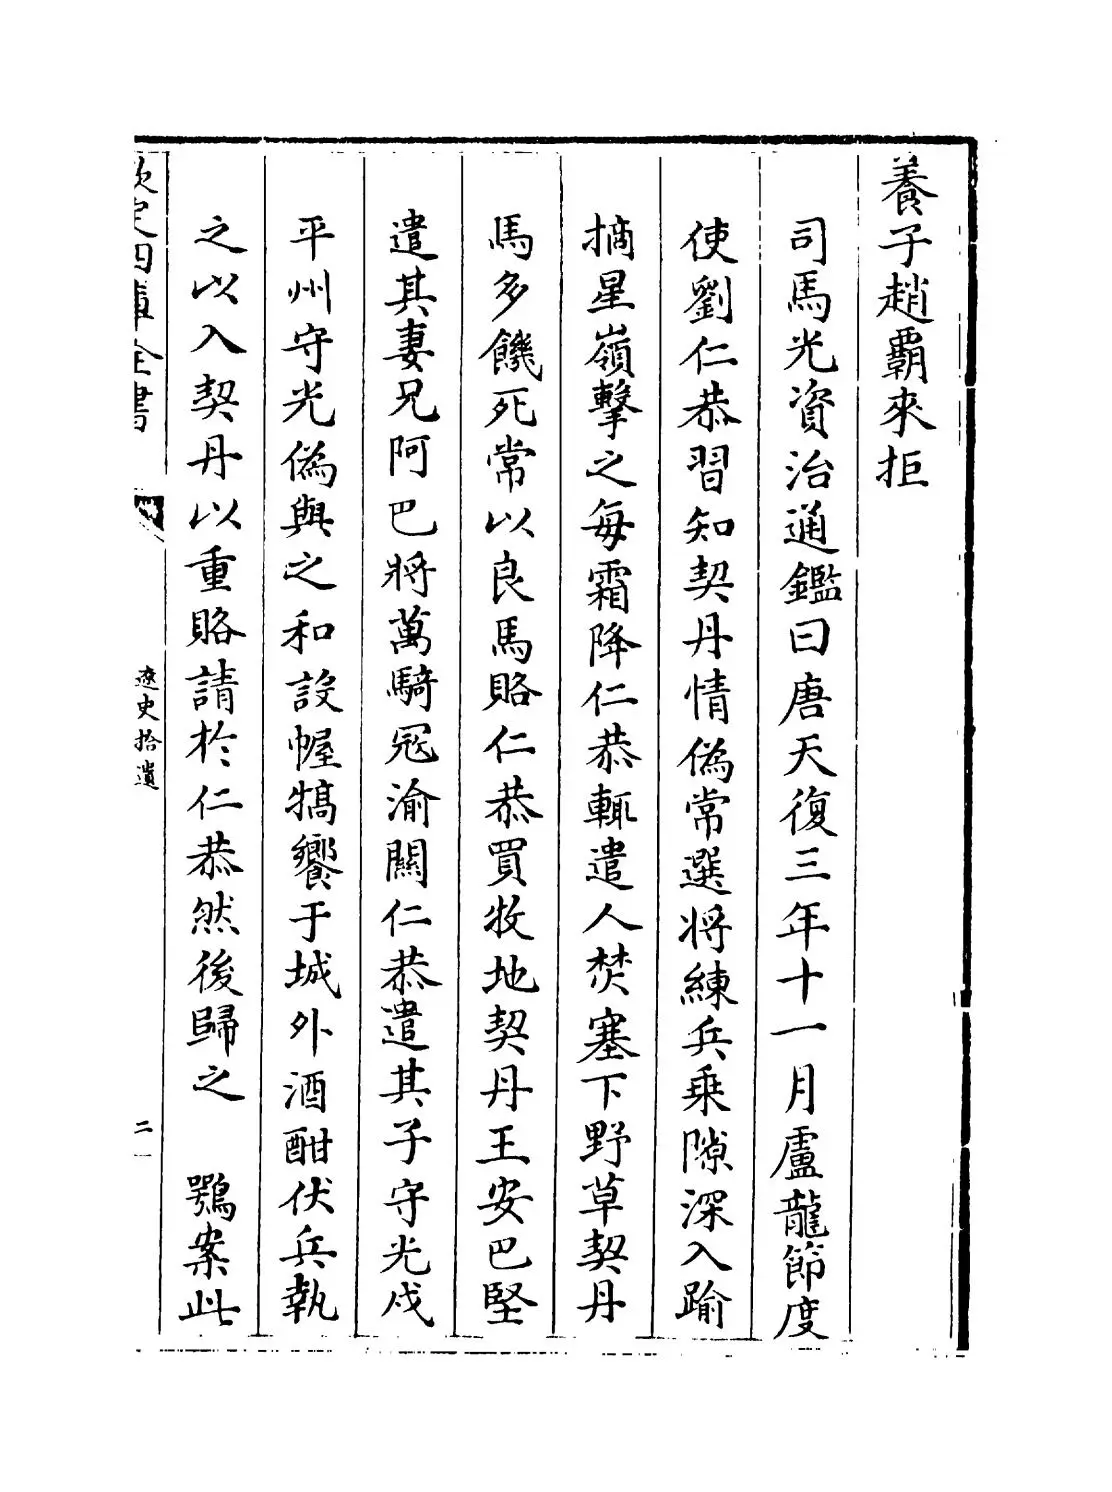 養子趙霸來拒
司馬光資治通鑑曰唐天復三年十一月盧龍節度
使劉仁恭習知契丹情偽常選將練兵乗隙深入踰
摘星嶺擊之每霜降仁恭輒遣人焚塞下野草契丹
馬多饑死常以良馬賂仁恭買牧地契丹王安巴堅
遣其妻兄阿巴將萬騎冦渝關仁恭遣其子守光戍
平州守光偽與之和設幄犒饗于城外酒酣伏兵執
之以入契丹以重賂請於仁恭然後歸之 鶚案此
欽定四庫全書
遼史拾遺
二